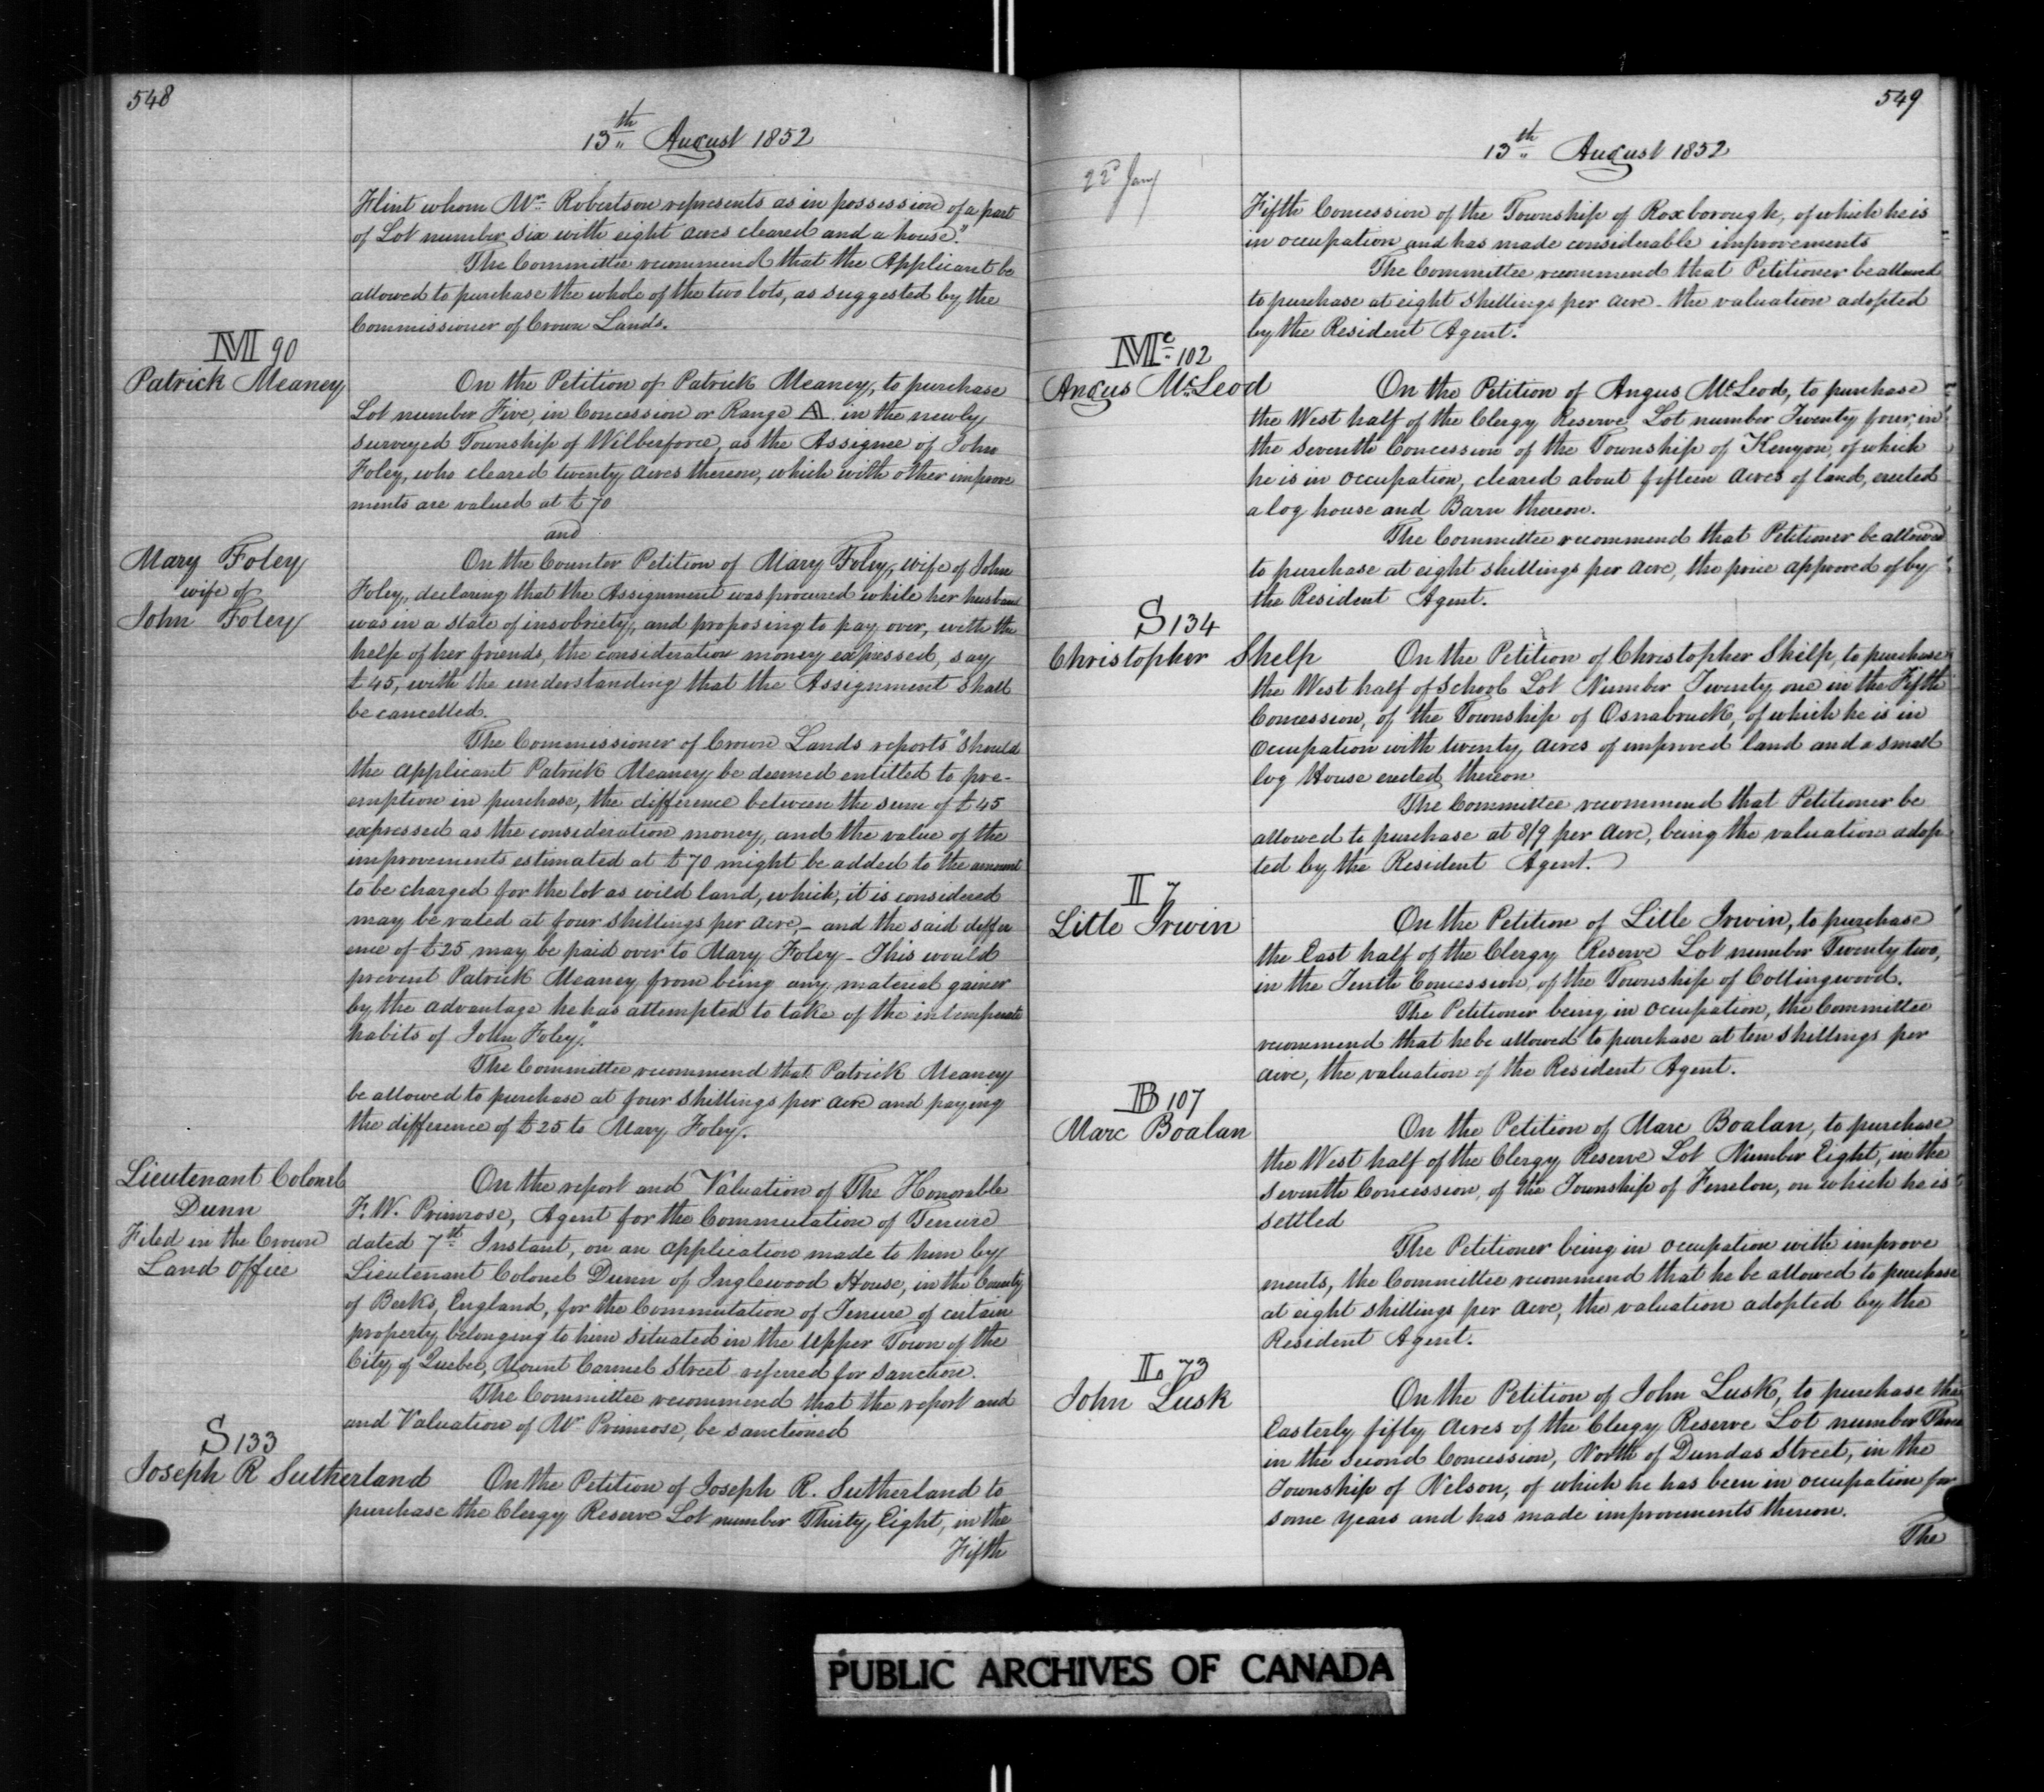 548
13th August 1852
Flint whom Mr. Robertson represents as in possession of a part
of Lot number six with eight acres cleared and a house."
The Committee recommend that the Applicant be
allowed to purchase the whole of the two lots, as suggested by the
Commissioner of Crown Lands.
M 90
Patrick Meaney
On the Petition of Patrick Meaney, to purchase
Lot number Five, in Concession or Range A in the newly
surveyed Township of Wilberforce, as the Assignee of John
Foley, who cleared twenty acres thereon, which with other improve
ments are valued at £70
and
Mary Foley
wife of
John Foley
On the Counter Petition of Mary Foley, wife of John
Foley, declaring that the Assignment was procured while her husband
was in a state of insobriety, and proposing to pay over, with the
help of her friends, the consideration money expressed, say
£45, with the understanding that the Assignment shall
be cancelled.
The Commissioner of Crown Lands reports "should
the applicant Patrick Meaney be deemed entitled to pre-
emption in purchase, the difference between the sum of £45
expressed as the consideration money, and the value of the
improvements estimated at £70 might be added to the amount
to be charged for the lot as wild land, which, it is considered
may be rated at four shillings per acre,– and the said differ
ence of £25 may be paid over to Mary Foley – This would
prevent Patrick Meaney from being any material gainer
by the advantage he has attempted to take of the intemperate
habits of John Foley."
The Committee recommend that Patrick Meaney
be allowed to purchase at four shillings per acre and paying
the difference of £25 to Mary Foley.
Lieutenant Colonel
Dunn
Filed in the Crown
Land Office
On the report and Valuation of The Honorable
F. W. Primrose, Agent for the Commutation of Tenure
dated 7th Instant, on an application made to him by
Lieutenant Colonel Dunn of Inglewood House, in the County
of Berks, England, for the Commutation of Tenure of certain
property belonging to him situated in the Upper Town of the
City of Quebec, Mount Carmel Street referred for sanction.
The Committee recommend that the report and
and Valuation of Mr Primrose, be sanctioned
S 133
Joseph R Sutherland
On the Petition of Joseph R. Sutherland to
purchase the Clergy Reserve Lot number Thirty Eight, in the
Fifth
549
13th August 1852
22d Jany
Fifth Concession of the Township of Roxborough, of which he is
in occupation and has made considerable improvements
The Committee recommend that Petitioner be allowed
to purchase at eight shillings per acre – the valuation adopted
by the Resident Agent.
Mc 102
Angus McLeod
On the Petition of Angus McLeod, to purchase
the West half of the Clergy Reserve Lot number Twenty four, in
the seventh Concession of the Township of Kenyon, of which
he is in occupation, cleared about fifteen acres of land, erected
a log house and Barn thereon.
The Committee recommend that Petitioner be allowed
to purchase at eight shillings per acre, the price approved of by
the Resident Agent.
S 134
Christopher Shelp
On the Petition of Christopher Shelp, to purchase
the West half of School Lot Number Twenty one in the Fifth
Concession, of the Township of Osnabruck, of which he is in
occupation with twenty acres of improved land and a small
log House erected thereon
The Committee recommend that Petitioner be
allowed to purchase at 8/9 per acre, being the valuation adop
ted by the Resident Agent.
I 7
Litle Irwin
On the Petition of Litle Irwin, to purchase
the East half of the Clergy Reserve Lot number Twenty two,
in the Tenth Concession, of the Township of Collingwood.
The Petitioner being in occupation, the Committee
recommend that he be allowed to purchase at ten shillings per
acre, the valuation of the Resident Agent.
B 107
Marc Boalan
On the Petition of Marc Boalan, to purchase
the West half of the Clergy Reserve Lot Number Eight, in the
seventh Concession, of the Township of Fenelon, on which he is
settled
The Petitioner being in occupation with improve
ments, the Committee recommend that he be allowed to purchase
at eight shillings per acre, the valuation adopted by the
Resident Agent.
L 73
John Lusk
On the Petition of John Lusk, to purchase the
Easterly fifty acres of the Clergy Reserve Lot number Three
in the second Concession, North of Dundas Street, in the
Township of Nelson, of which he has been in occupation for
some years and has made improvements thereon.
The
PUBLIC ARCHIVES OF CANADA